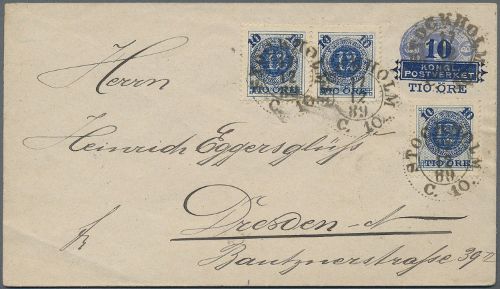 10 10
TIO ÖRE TIO ÖRE
STOCKHOLM
89
C. 10.
STOCKHOLM
10
KONGL.
POSTVERKET
TIO ÖRE
10 10
TIO ÖRE
STOCKHOLM
89
C. 10.
Herrn
Heinrich Eggersglüss
Dresden-N
Bautznerstrasse 39 II